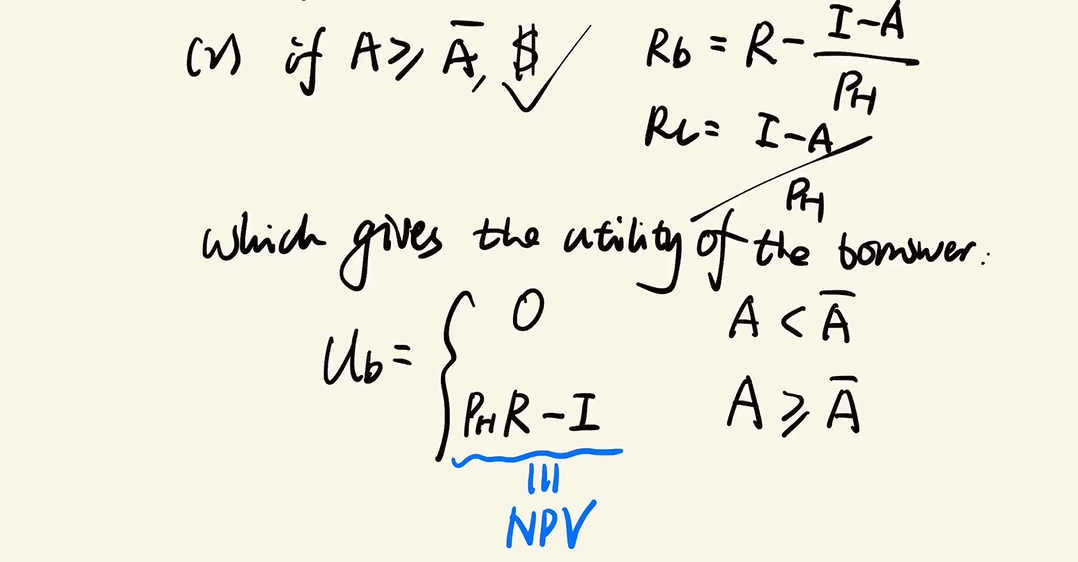 (2) if A ≥ Ā, $ ✓ Rb = R - (I-A)/PH
RL = (I-A)/PH
which gives the utility of the borrower:
Ub = { 0 A < Ā
PHR - I A ≥ Ā
|||
NPV